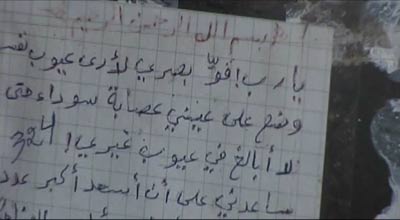 بسم الله الرحمن الرحيم
يا رب! قوِّ بصري لأرى عيوب نفسي
وضع على عيني عصابة سوداء حتى
لا أبالغ في عيوب غيري! 324
ساعدني على أن أسعد أكبر عدد